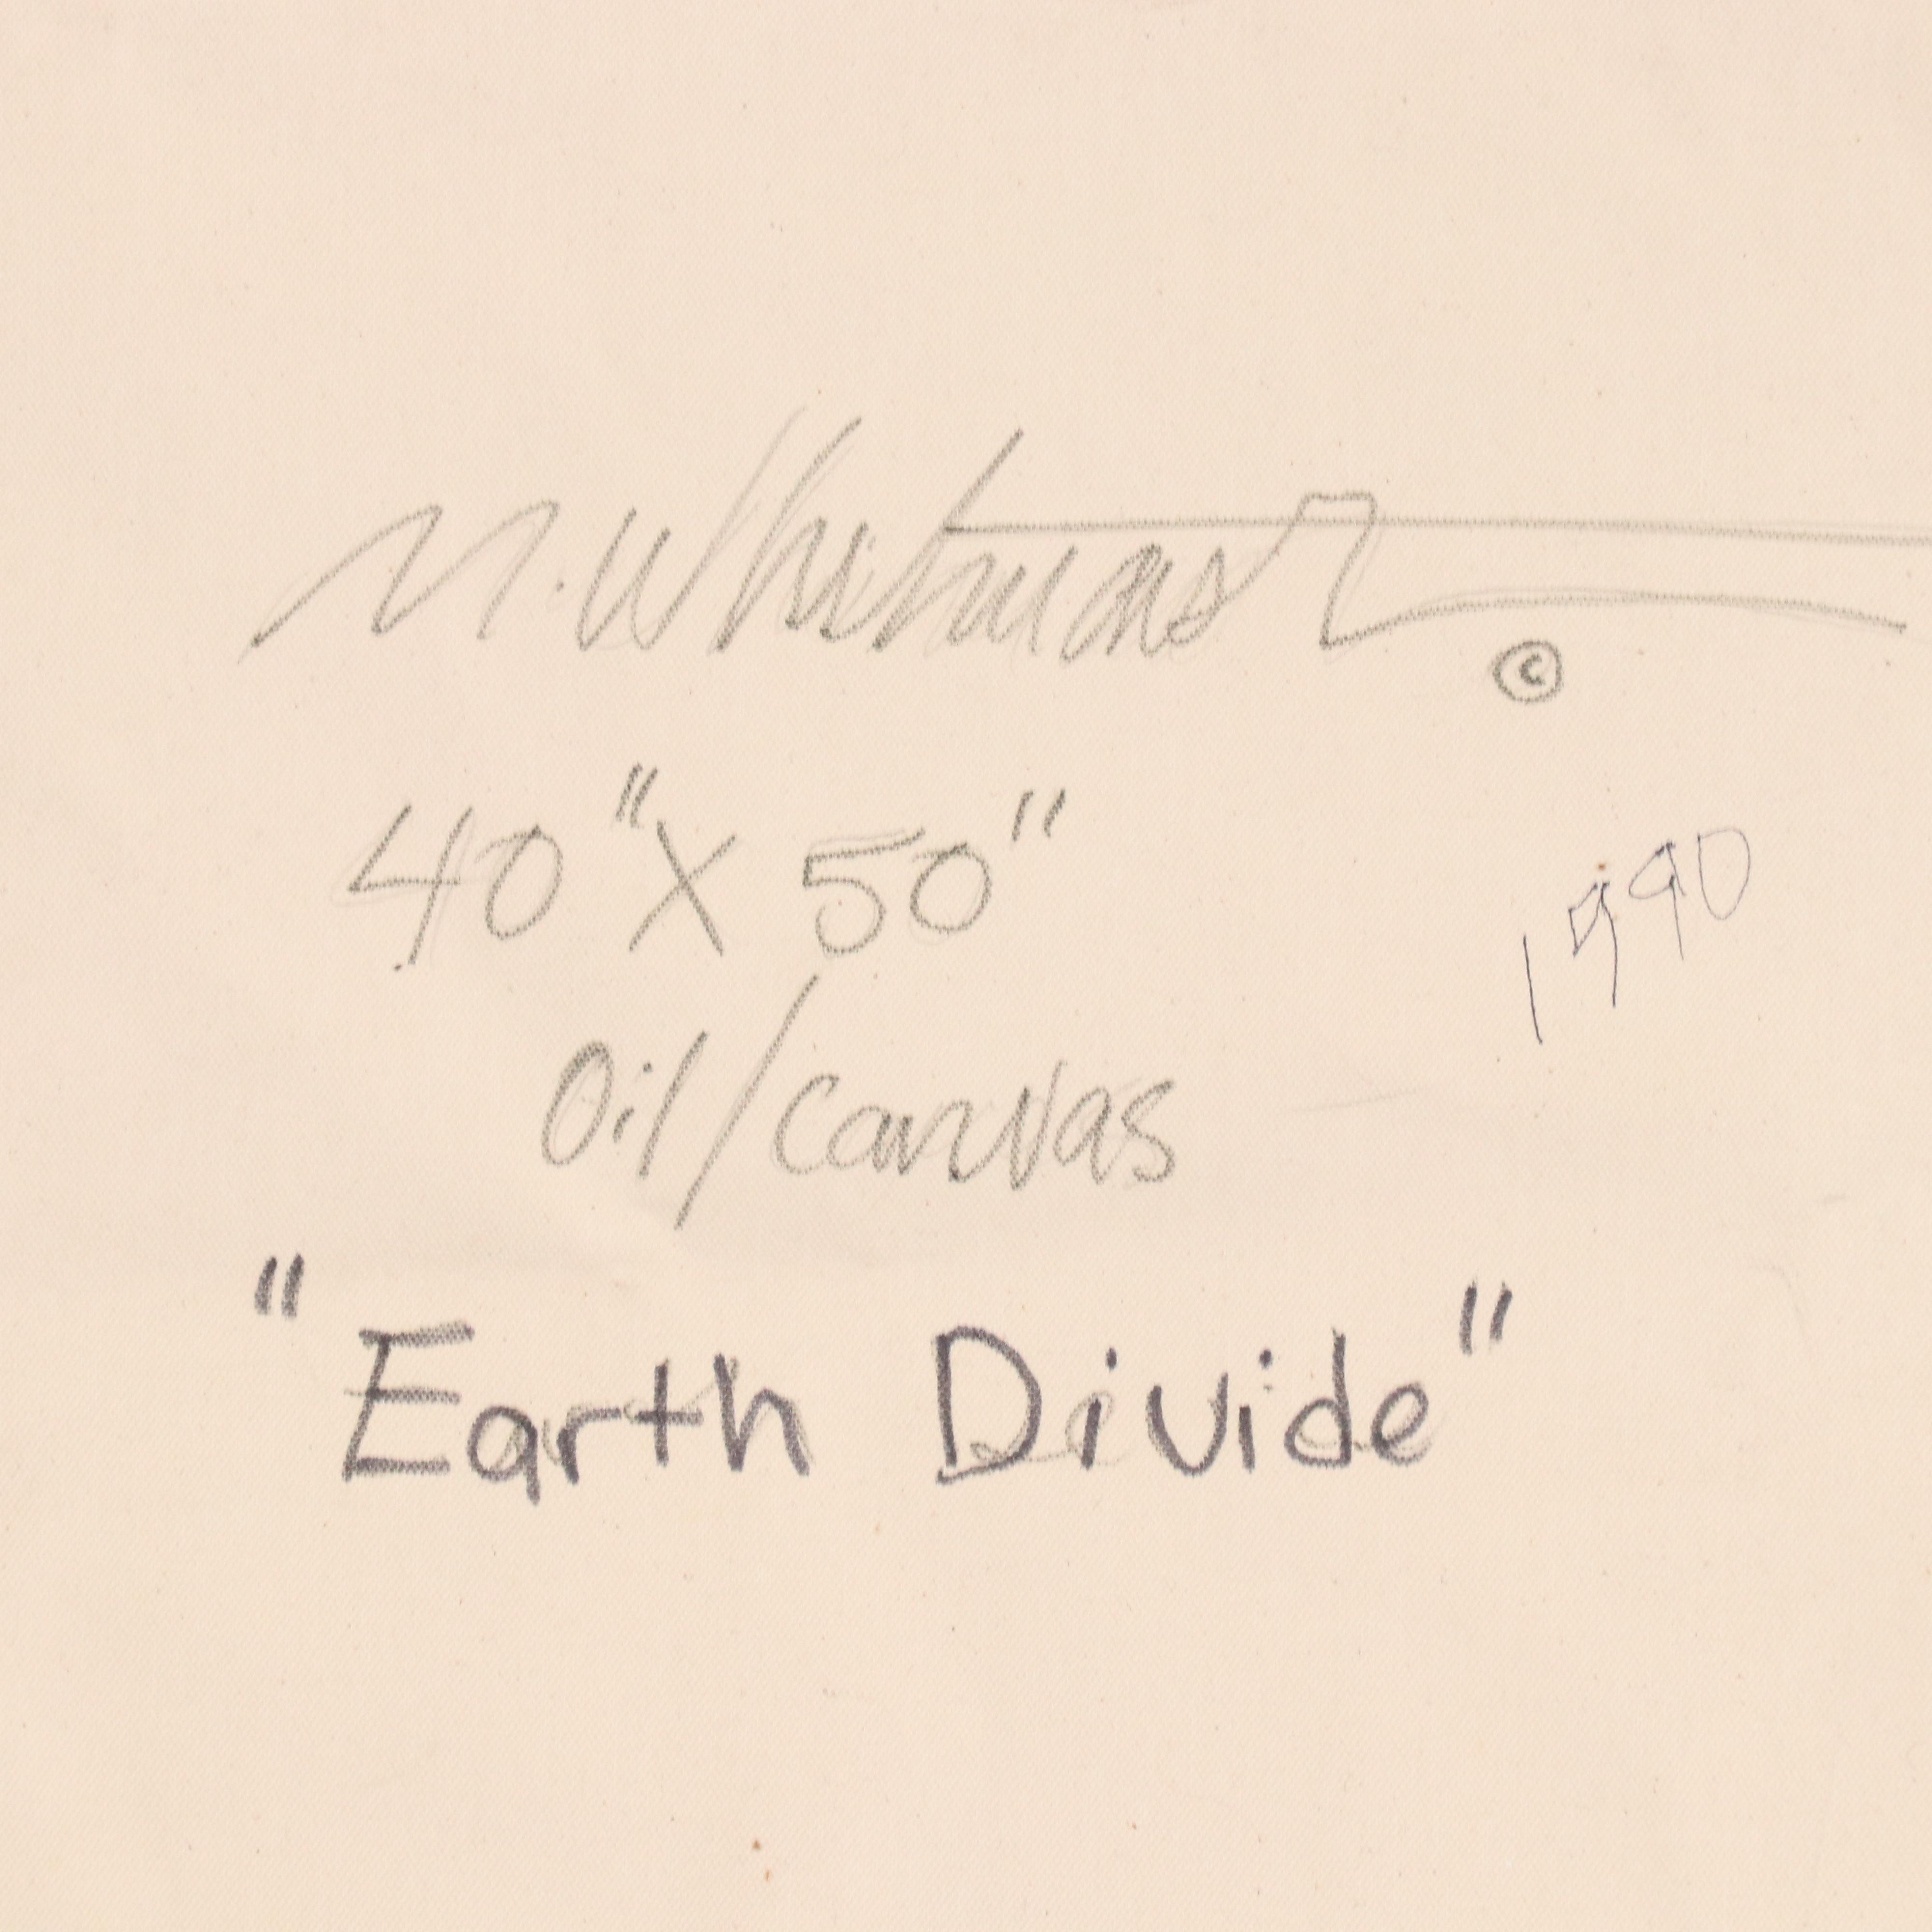 M. Whitman ©
40" X 50"
1990
Oil/Canvas
"Earth Divide"